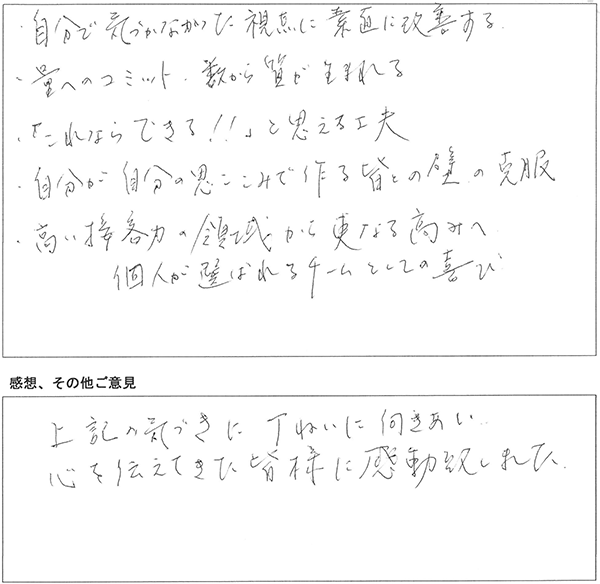 ・自分で気づかなかった視点に素直に改善する。
・量へのコミット、数から質が生まれる
・「これならできる!!」と思える工夫
・自分が自分の思いこみで作る皆との壁の克服
・高い接客力の領域から更なる高みへ
個人が選ばれるチームとしての喜び
感想、その他ご意見
上記の気づきに丁ねいに向きあい
心を伝えてきた皆様に感動致しました。